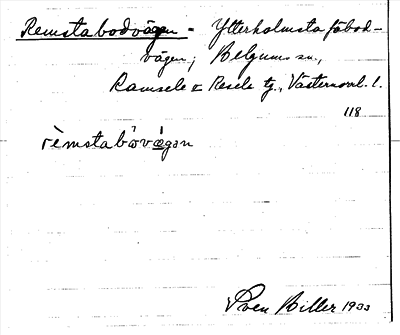 Remstabodvägen - Ytterholmsta fäbod-
vägen; Helgums sn.,
Ramsele o Resele tg., Västernorrl. l.
118
rèmstabωvægən
Sven Biller 1933